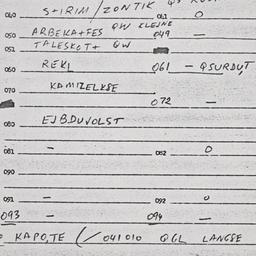 040 STIRIM/ZONTIK 041 O
050 ARBEKA+FES QW KLEJNE 049 —
051 TALESKOT+ QW
060 REKL 061 — QSURDUT
070 KAMIZELKSE
072 —
080 EJBDUVOLST
081 — 082 O
090
091 — 092 O
093 — 094 —
KAPOTE (/041010 QGL LANGSE